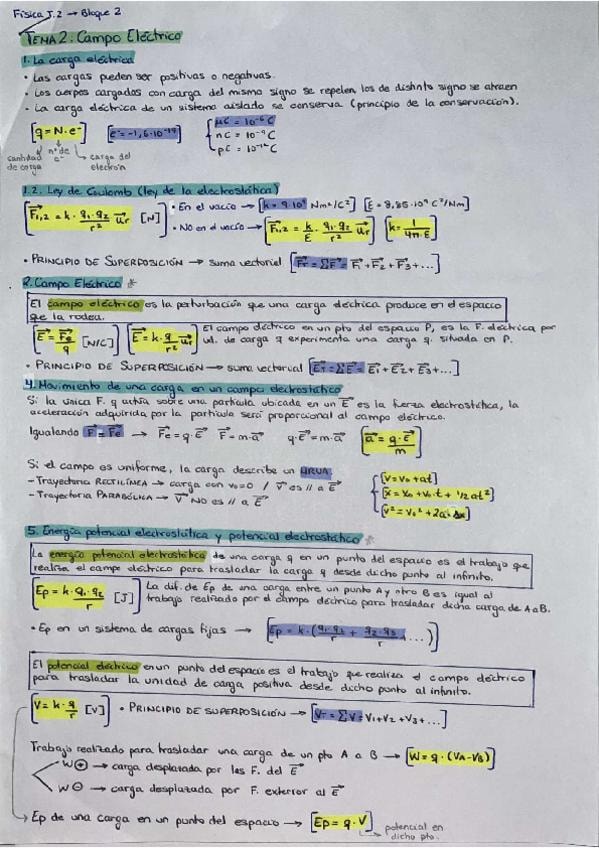 Física J.2 → Bloque 2
TEMA 2: Campo Eléctrico
1. La carga eléctrica
• Las cargas pueden ser positivas o negativas.
• Los cuerpos cargados con carga del mismo signo se repelen, los de distinto signo se atraen
- La carga eléctrica de un sistema aislado se conserva (principio de la conservación).
[q = N·e⁻] [e⁻ = -1,6·10⁻¹⁹] { μC = 10⁻⁶ C
nC = 10⁻⁹ C
pC = 10⁻¹² C
cantidad de carga
nº de e⁻
carga del electrón
1.2. Ley de Coulomb (ley de la electrostática)
[F⃗₁,₂ = k · q₁·q₂/r² u⃗r [N]] • En el vacío → [k = 9·10⁹ Nm²/C²] [ε = 8,85·10⁹ C²/Nm]
• NO en el vacío → [F⃗₁,₂ = k/ε · q₁·q₂/r² u⃗r] [k = 1/4π·ε]
• PRINCIPIO DE SUPERPOSICIÓN → suma vectorial [F⃗T = ΣF⃗ = F⃗₁ + F⃗₂ + F⃗₃ + ...]
2. Campo Eléctrico *
El campo eléctrico es la perturbación que una carga eléctrica produce en el espacio
que la rodea.
[E⃗ = F⃗e/q [N/C]] [E⃗ = k · q/r² u⃗r] El campo eléctrico en un pto del espacio P, es la F. eléctrica por
ud. de carga q experimenta una carga q situada en P.
• PRINCIPIO DE SUPERPOSICIÓN → suma vectorial [E⃗T = ΣE⃗ = E⃗₁ + E⃗₂ + E⃗₃ + ...]
4. Movimiento de una carga en un campo electrostático
Si la única F. q actúa sobre una partícula ubicada en un E⃗ es la fuerza electrostática, la
aceleración adquirida por la partícula será proporcional al campo eléctrico.
Igualando F⃗ = F⃗e → F⃗e = q·E⃗ F⃗ = m·a⃗ q·E⃗ = m·a⃗ [a⃗ = q·E⃗/m]
Si el campo es uniforme, la carga describe un MRUA:
- Trayectoria RECTILÍNEA → carga con v₀=0 / v⃗ es // a E⃗
- Trayectoria PARABÓLICA → v⃗ NO es // a E⃗
{ [v = v₀ + at]
[x = x₀ + v₀·t + 1/2 at²]
[v² = v₀² + 2a·Δx]
5. Energía potencial electrostática y potencial electrostático *
La energía potencial electrostática de una carga q en un punto del espacio es el trabajo que
realiza el campo eléctrico para trasladar la carga q desde dicho punto al infinito.
[Ep = k · q₁·q₂/r [J]] La dif. de Ep de una carga entre un punto A y otro B es igual al
trabajo realizado por el campo eléctrico para trasladar dicha carga de A a B.
• Ep en un sistema de cargas fijas → [Ep = k·(q₁·q₂/r + q₂·q₃/r + ...)]
El potencial eléctrico en un punto del espacio es el trabajo que realiza el campo eléctrico
para trasladar la unidad de carga positiva desde dicho punto al infinito.
[V = k · q/r [V]] • PRINCIPIO DE SUPERPOSICIÓN → [VT = ΣV = V₁ + V₂ + V₃ + ...]
Trabajo realizado para trasladar una carga de un pto A a B → [W = q · (VA - VB)]
W ⊕ → carga desplazada por las F. del E⃗
W ⊖ → carga desplazada por F. exterior al E⃗
Ep de una carga en un punto del espacio → [Ep = q · V]
potencial en
dicho pto.